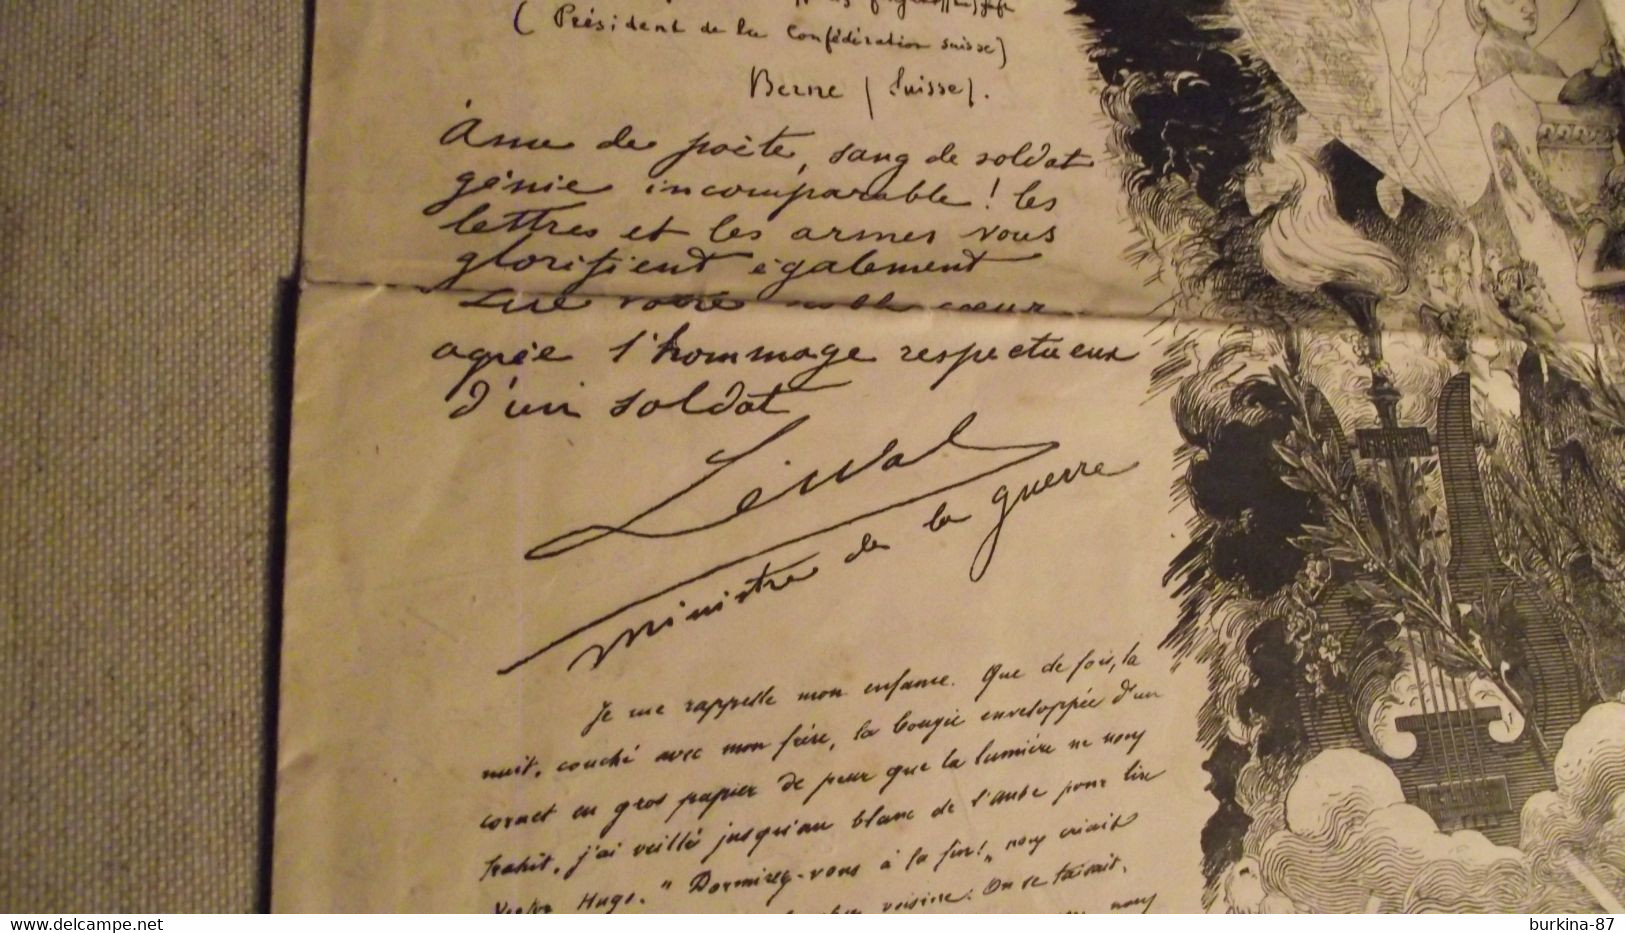 ( Président de la Confédération suisse)
Berne (Suisse).
Âme de poète, sang de soldat
génie incomparable ! les
lettres et les armes vous
glorifient également
que votre noble cœur
agrée l'hommage respectueux
d'un soldat
Lewal
ministre de la guerre
Je me rappelle mon enfance. Que de fois, la
nuit, couché avec mon frère, la bougie enveloppée d'un
cornet en gros papier de peur que la lumière ne nous
trahit, j'ai veillé jusqu'au blanc de l'aube pour lire
Victor Hugo. "Dormirez-vous à la fin!" nous criait
voisine. On se taisait,
nous
burkina-87